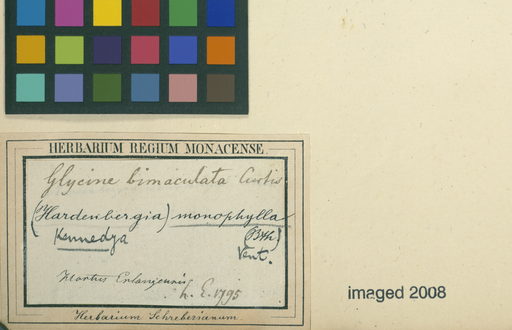 HERBARIUM REGIUM MONACENSE.
Glycine bimaculata Curtis
(Hardenbergia) monophylla
Kennedya Bth)
Vent.
Hortus Erlangensis
h. E. 1795
Herbarium Schreberianum.
imaged 2008